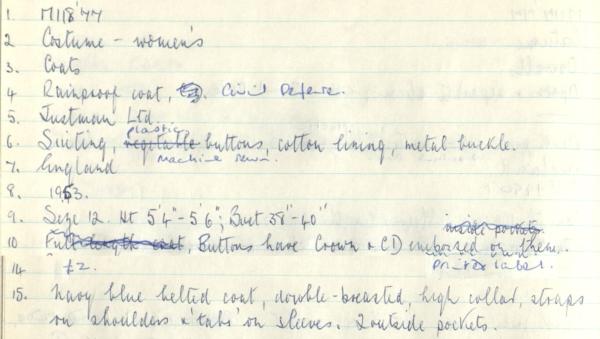 1. M118'77
2 Costume - women's
3. Coats
4 Rainproof coat, Civil Defence.
5. Justman Ltd.
plastic
6. Suiting, vegetable buttons, cotton lining, metal buckle.
machine sewn.
7. England
8. 1953.
9. Size 12. Ht 5'4"-5'6"; Bust 38"-40"
inside pockets.
10 Full length coat, Buttons have Crown & CD embossed on them.
printed label.
14. £2.
15. Navy blue belted coat, double-breasted, high collar, straps
on shoulders & 'tabs' on sleeves. 2 outside pockets.